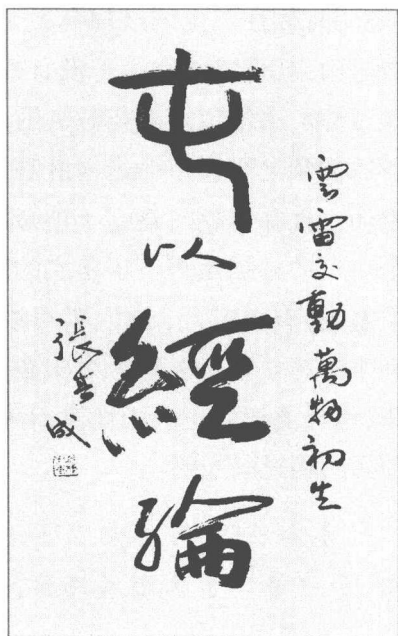 雲雷交動 萬物初生
屯以經綸
張成